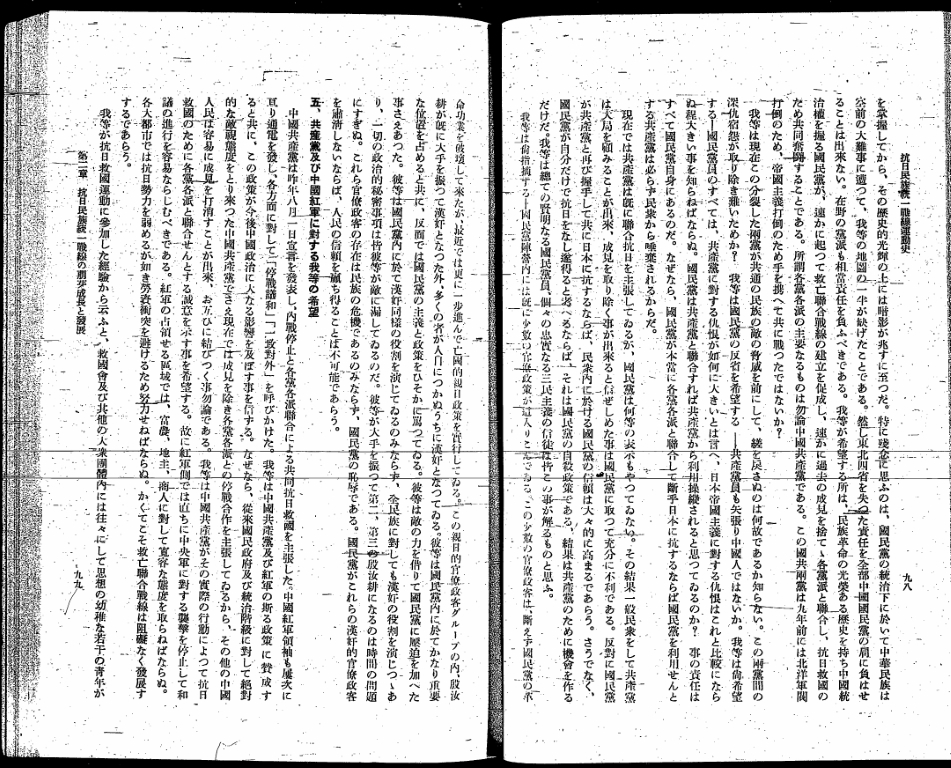 抗日民族統一戰線運動史
九八
を掌握してから、その歷史的光輝の上には暗影が兆すに至つた。特に殘念に思ふのは、國民黨の統治下に於いて中華民族は
空前の大難事に遭つて、我等の地圖の一半が缺けたことである。然し東北四省を失つた責任を全部中國國民黨の肩に負はせ
ることは出來ない。在野の黨派も相當責任を負ふべきである。我等が希望する所は、民族革命の光榮ある歷史を持ち中國統
治權を握る國民黨が、速かに起つて救亡聯合戰線の建立を促成し、速かに過去の成見を捨てゝ各黨派と聯合し、抗日救國の
ため共同奮鬪することである。所謂各黨各派の主要なるものは勿論中國共產黨である。この國共兩黨は九年前には北洋軍閥
打倒のため、帝國主義打倒のため手を携へて共に戰つたではないか?
我等は現在この分裂した兩黨が共通の民族の敵の脅威を前にして、縒を戾さぬのは何故であるか知らない。この兩黨間の
深仇宿怨が取り除き難いためか? 我等は國民黨の反省を希望する――共產黨員も矢張り中國人ではないか。我等は尙希望
する――國民黨員のすべては、共產黨に對する仇恨が如何に大きいとは言へ、日本帝國主義に對する仇恨はこれと比較になら
ぬ程大きい事を知らねばならぬ。國民黨は共產黨と聯合すれば共產黨から利用操縱されると思つてゐるのか? 事の責任は
すべて國民黨自身にあるのだ。なぜなら、國民黨が本當に各黨各派と聯合して斷乎日本に抗するならば國民黨を利用せんと
する共產黨は必らず民衆から唾棄されるからだ。
現在では共產黨は旣に聯合抗日を主張してゐるが、國民黨は何等の表示もやつてゐない。その結果一般民衆をして共產黨
は大局を顧みることが出來、成見を取り除く事が出來ると信ぜしめた事は國民黨に取つて充分に不利である。反對に國民黨
が共產黨と再び握手して共に日本に抗するならば、民衆內に於ける國民黨の信賴は大々的に高まるであらう。さうでなく、
國民黨が自分だけで抗日をなし遂得ると考へるならば、それは國民黨の自殺政策である。結果は共產黨のために機會を作る
だけだ。我等は總ての賢明なる國民黨員、個々の忠實なる三民主義の信徒は皆この事が解るものと思ふ。
我等は尙指摘する――國民黨陣營內には旣に少數の官僚政客が這入りこんでゐる。この少數の官僚政客は、斷えず國民黨の革
命功業を破壞して來たが、最近では更に一步進んで亡國的親日政策を實行してゐる。この親日的官僚政客グループの內、殷汝
耕が旣に大手を振つて漢奸となつた外、多くの者が人目につかぬうちに漢奸となつてゐる。彼等は國民黨內に於てかなり重要
な位置を占めると共に、反面では國民黨の主義と政策をひそかに罵つてゐる。彼等は敵の力を借りて國民黨に壓迫を加へた
事さえあつた。彼等は國民黨內に於て漢奸同樣の役割を演じてゐるのみならず、全民族に對しても漢奸の役割を演じつゝあ
り、一切の政治的秘密事項は皆彼等が敵に漏してゐるのだ。彼等が大手を振つて第二、第三の殷汝耕になるのは時間の問題
にすぎぬ。これら官僚政客の存在は民族の危機であるのみならず、國民黨の恥辱である。國民黨がこれらの漢奸的官僚政客
を肅淸しないならば、人民の信賴を贏ち得ることは不可能であらう。
五、共產黨及び中國紅軍に對する我等の希望
中國共產黨は昨年八月一日宣言を發表し、內戰停止と各黨各派聯合による共同抗日救國を主張した。中國紅軍領袖も屢次に
亘り通電を發し、各方面に對して「停外戰議和」「一致對外」を呼びかけた。我等は中國共產黨及び紅軍の斯る政策に贊成す
ると共に、この政策が今後中國政治に大なる影響を及ぼす事を信ずる。なぜなら、從來國民政府及び統治階級に對して絕對
的な敵視態度をとり來つた中國共產黨でさえ現在では成見を除き各黨各派との停戰合作を主張してゐるから、その他の中國
人民は容易に成見を打消すことが出來、お互ひに結びつく事勿論である。我等は中國共產黨がその實際の行動によつて抗日
救國のために各黨各派と聯合せんとする誠意を示す事を希望する。故に紅軍側では直ちに中央軍に對する襲擊を停止して和
議の進行を容易ならしむべきである。紅軍の占領せる區域では、富農、地主、商人に對して寬容な態度を取らねばならぬ。
各大都市では抗日勢力を弱めるが如き勞資衝突を避けるため努力せねばならぬ。かくてこそ救亡聯合戰線は阻礙なく發展す
するであらう。
我等が抗日救國運動に參加した經驗から云ふと、救國會及び其他の大衆團體內には往々にして思想の幼稚な若干の靑年が
第二章 抗日民族統一戰線の萌芽成長と發展
九九